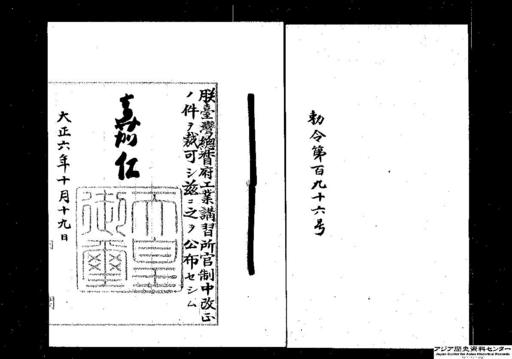 勅令第百九十六号
朕臺灣總督府工業講習所官制中改正
ノ件ヲ裁可シ茲ニ之ヲ公布セシム
嘉仁
天皇御璽
大正六年十月十九日
アジア歴史資料センター
Japan Center for Asian Historical Records